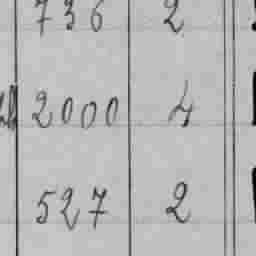 736 2
2000 4
527 2